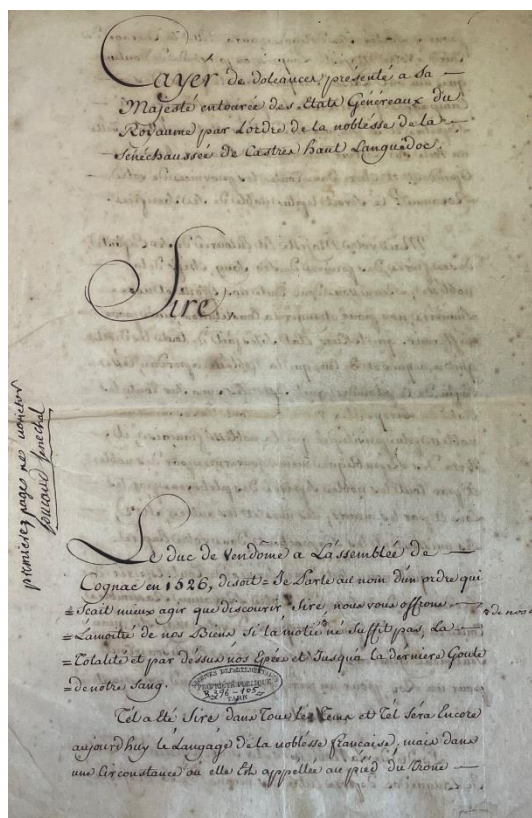 Cayér de doléances, présenté a Sa
Majesté entourée des Etats Généreaux du
Royaume par L'ordre de la noblésse de la
Sénéchaussée de Castres haut Languédoc.
Sire,
premieres pages ne varietur
senechal
Le duc de Vendôme a L'assemblée de
Cognac en 1526, disoit = Je Parle au nom d'un ordre qui
= Scait mieux agir que discourir, Sire, nous vous offrons
= La moitié de nos Biens, Si la motié né Suffit pas, La
= Totalité et par déssus nos Epées et Jusqu'a la derniere Goute
= de notre Sang.
ARCHIVES DEPARTEMENTALES
PROPRIÉTÉ PUBLIQUE
TARN
Tél a Eté Sire dans Tous les Tems et Tél séra Encore
aujourd'huy lé Langagé dé la noblésse française, mais dans
une Circonstance ou elle Est appellée au pied du Trone